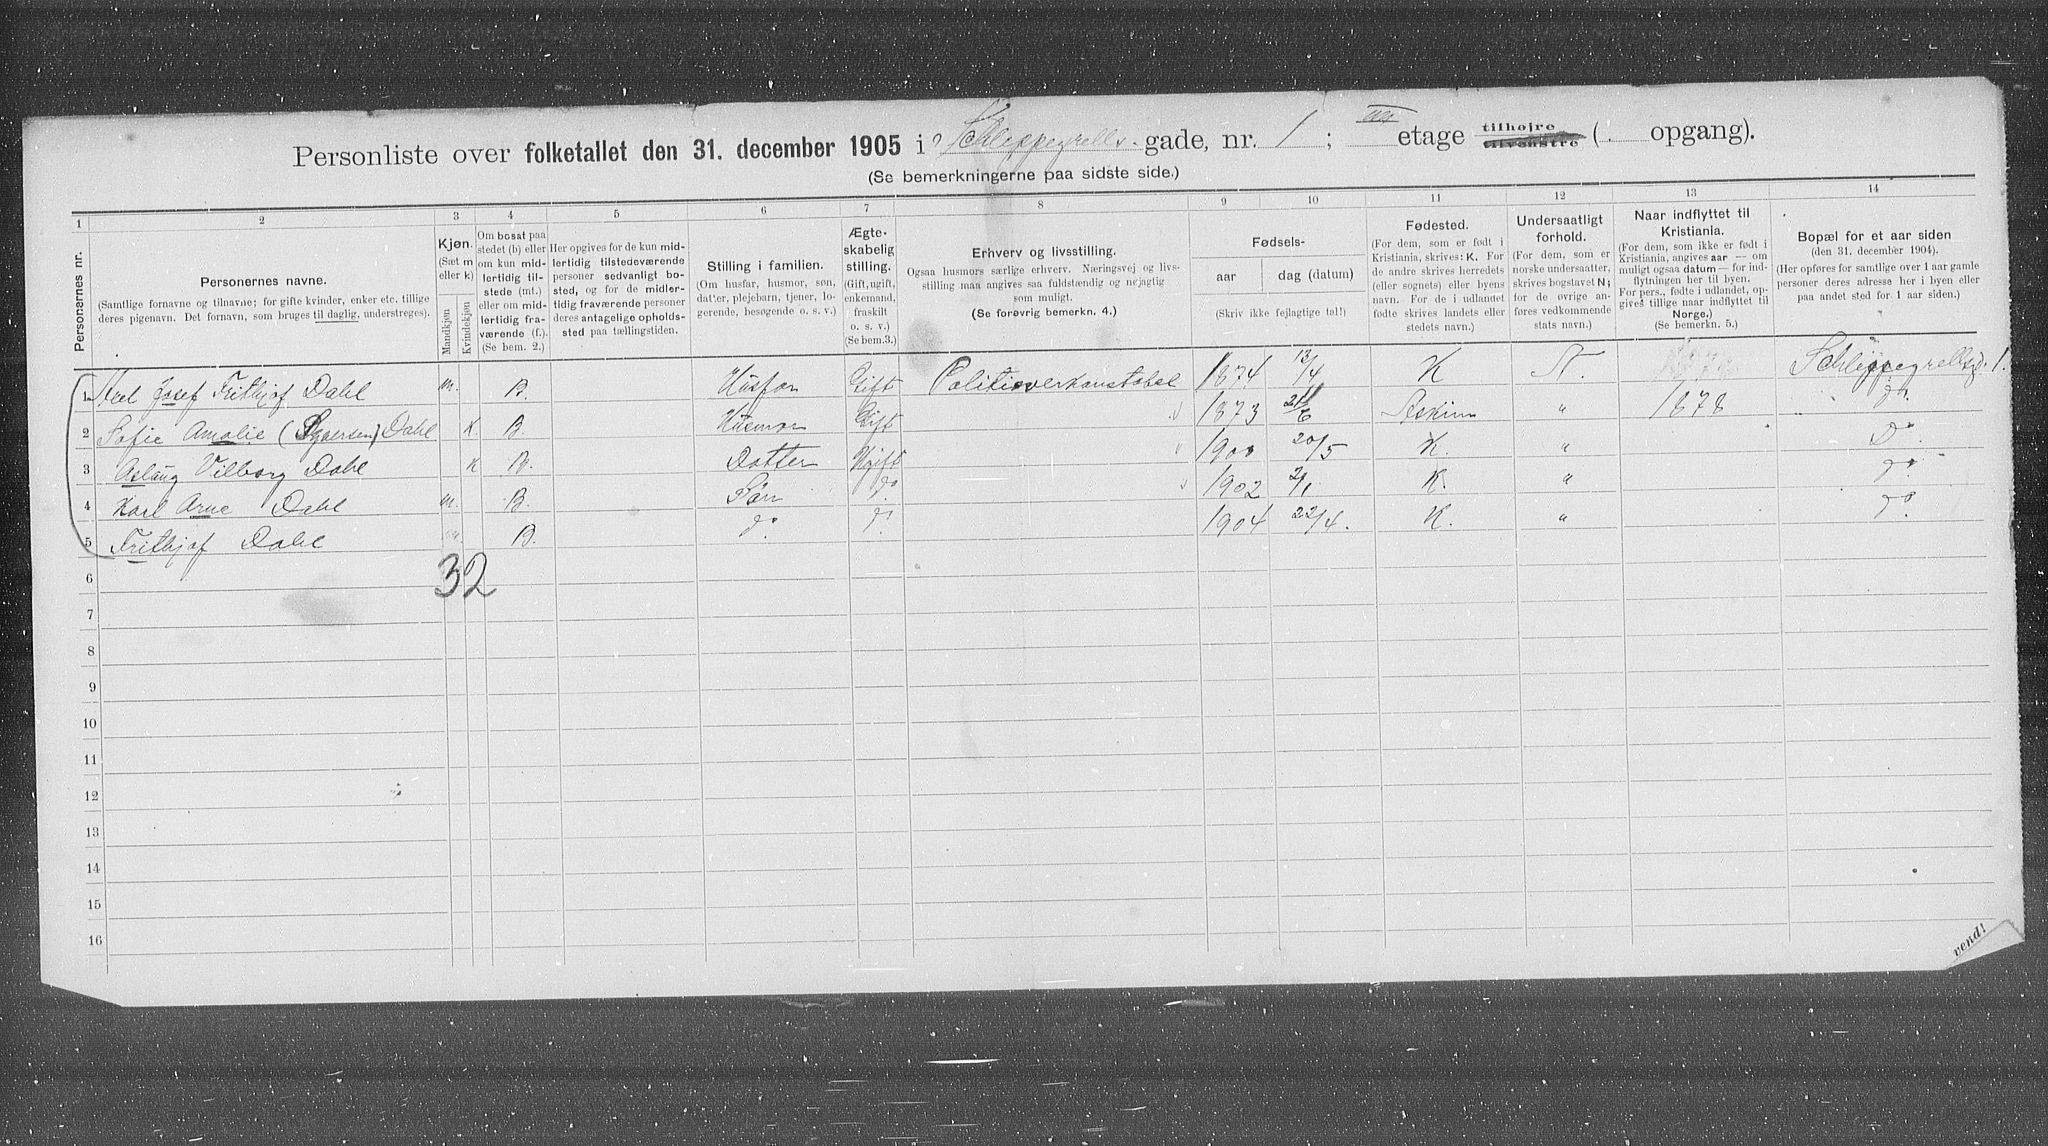 Personliste over folketallet den 31. december 1905 i Schleppegrells gade, nr. 1; III etage tilhøjre tilvenstre ( . opgang).
(Se bemerkningerne paa sidste side.)
1 2 3 4 5 6 7 8 9 10 11 12 13 14
Personernes nr.
Personernes navne.
(Samtlige fornavne og tilnavne; for gifte kvinder, enker etc. tillige
deres pigenavn. Det fornavn, som bruges til daglig, understreges).
Kjøn.
(Sæt m
eller k)
Mandkjøn
Kvindekjøn
Om bosat paa
stedet (b) eller
om kun mid-
lertidig til-
stede (mt.)
eller om mid-
lertidig fra-
værende (f.).
(Se bem. 2.)
Her opgives for de kun mid-
lertidig tilstedeværende
personer sedvanligt bo-
sted, og for de midler-
tidig fraværende personer
deres antagelige opholds-
sted paa tællingstiden.
Stilling i familien.
(Om husfar, husmor, søn,
datter, plejebarn, tjener, lo-
gerende, besøgende o. s. v.)
Ægte-
skabelig
stilling.
(Gift, ugift,
enkemand,
fraskilt
o. s. v.)
(Se bem.3.)
Erhverv og livsstilling.
Ogsaa husmors særlige erhverv. Næringsvej og livs-
stilling maa angives saa fuldstændig og nøjagtig
som muligt.
(Se forøvrig bemerkn. 4.)
Fødsels-
aar dag (datum)
(Skriv ikke fejlagtige tal!)
Fødested.
(For dem, som er født i
Kristiania, skrives: K. For
de andre skrives herredets
(eller sognets) eller byens
navn. For de i udlandet
fødte skrives landets eller
stedets navn.)
Undersaatligt
forhold.
(For dem, som er
norske undersaatter,
skrives bogstavet N;
for de øvrige an-
føres vedkommende
stats navn.)
Naar indflyttet til
Kristiania.
(For dem, som ikke er født i
Kristiania, angives aar — om
muligt ogsaa datum — for ind-
flytningen her til byen.
For pers., født i udlandet, op-
gives tillige naar indflyttet til
Norge.)
(Se bemerkn. 5.)
Bopæl for et aar siden
(den 31. december 1904).
(Her opføres for samtlige over 1 aar gamle
personer deres adresse her i byen eller
paa andet sted for 1 aar siden.)
1 Axel Josef Frithjof Dahl m. B. Husfar Gift Politioverkonstabel 1874 13/4 K N. Schleppegrellsg. 1.
2 Sofie Amalie Dahl K. B. Husmor Gift 1873 /6 Askim " 1878 do.
3 Aslaug Vilborg Dahl K B. Datter Ugift 1900 20/5 K. " Do.
4 Karl Arne Dahl m. B. Søn do. 1902 2/1 K. " do.
5 Frithjof Dahl m. B. do. do. 1904 22/4. K. " do.
32
6
7
8
9
10
11
12
13
14
15
16
vend!